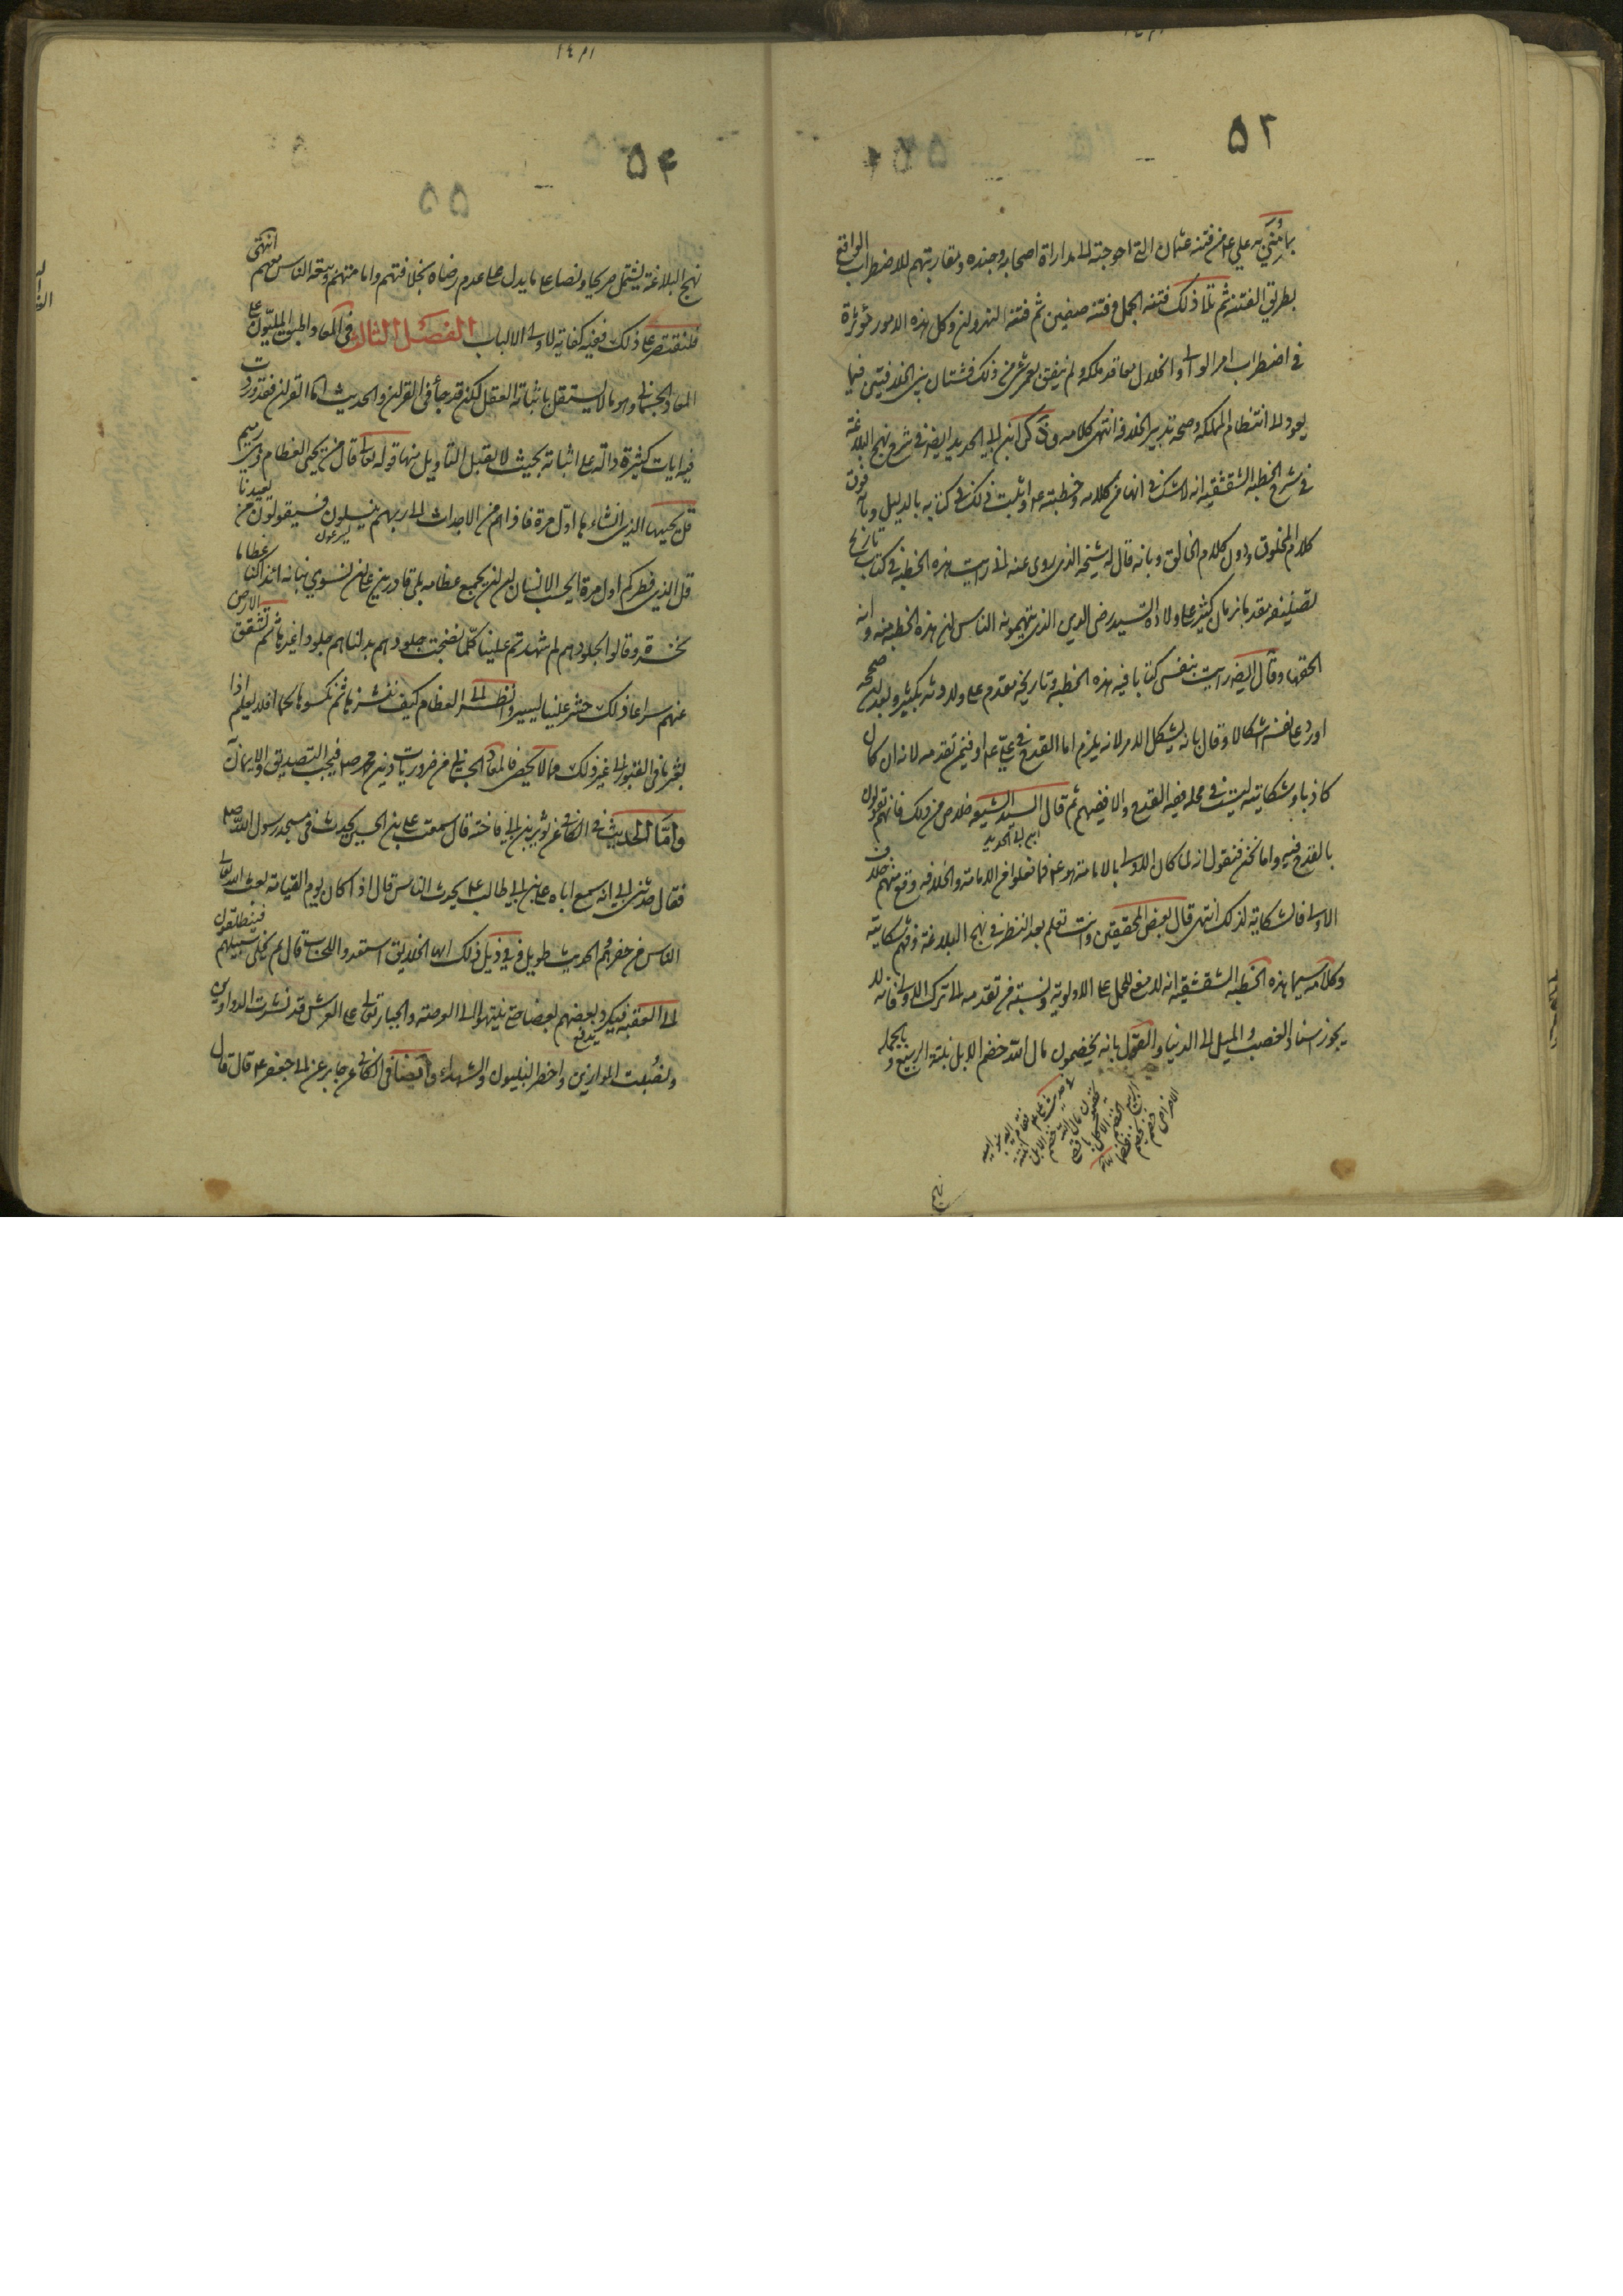 ۵۲
بما مني به علي ع من فتنة عثمان التي احوجته الى مداراة اصحابه وجنده ومقاربتهم للاضطراب الواقع
بطريق الفتنة ثم تلا ذلك فتنة الجمل وفتنة صفين ثم فتنة النهروان وكل هذه الامور مؤثرة
في اضطراب امر الوالي وانحلال معاقد ملكه ولم يتفق لعمر شي من ذلك فشتان بين الخلافتين فيما
يعود الى انتظام المملكة وصحة تدبير الخلافة انتهى كلامه وقد ذكر ابن ابي الحديد ايضا في شرح نهج البلاغة
في شرح الخطبة الشقشقية انه لا شك في انها من كلامه وخطبته ع واثبت ذلك في كتابه بالدليل وبانه فوق
كلام المخلوق ودون كلام الخالق وبانه قال له شيخه الذي روى عنه اني رايت هذه الخطبة في كتاب تاريخ
تصنيفه مقدم بزمان كثير على ولادة السيد رضي الدين الذي يتهمونه الناس ان هذه الخطبة منه وانه
الحقها وقال ايضا رايت بنفسي كتابا فيه هذه الخطبة وتاريخه مقدم على ولادته بكثير وبعد صححه
اورد على نفسه اشكالا وقال بانه يشكل الامر لانه يلزم اما القدح في علي ع او فيمن تقدمه لانه ان كان
كاذبا وشكايته ليست في محله ففيه القدح والا ففيهم ثم قال السيد الشيعة خلاص من ذلك فانهم يقولون
ابن ابي الحديد
بالقدح فيهم واما نحن فنقول انه لما كان الاولى بالامامة هو ع فما فعلوا من الامامة والخلافة وقع منهم خلاف
الاولى فالشكاية لذلك انتهى قال بعض المحققين وانت تعلم بعد النظر في نهج البلاغة وفهم شكايته
وكلامه سيما هذه الخطبة الشقشقية انه لا معنى للحمل على الاولوية ونسبة من تقدمه الى ترك الاولى فانه لا
يجوز اسناد الغصب والميل الى الدنيا والقول بانه يخضمون مال الله خضم الابل نبتة الربيع وبالجملة
نهج
۵۴
۵۵
نهج البلاغة يشتمل صريحا ونصا على ما يدل على عدم رضاه بخلافتهم وامامتهم وبيعة الناس معهم انتهى
فلنقتصر على ذلك ففيه كفاية لاولي الالباب الفصل الثالث في المعاد اجمع المليون على
المعاد الجسماني وهو مما لا يستقل باثباته العقل لكن قد جاء في القران والحديث اما القران فقد وردت
فيه ايات كثيرة دالة على اثباته بحيث لا يقبل التاويل منها قوله تعالى قال من يحيي العظام وهي رميم
قل يحييها الذي انشاءها اول مرة فاذا هم من الاجداث الى ربهم ينسلون فسيقولون من يعيدنا
قل الذي فطركم اول مرة ايحسب الانسان ان لن نجمع عظامه بلى قادرين على ان نسوي بنانه ائذا كنا عظاما
نخرة وقالوا لجلودهم لم شهدتم علينا كلما نضجت جلودهم بدلناهم جلودا غيرها يوم تشقق الارض
عنهم سراعا ذلك حشر علينا يسير وانظر الى العظام كيف ننشزها ثم نكسوها لحما افلا يعلم اذا
بعثر ما في القبور الى غير ذلك مما لا يحصى فالمعاد الجسماني من ضروريات دين محمد ص فيجب التصديق والايمان
واما الحديث ففي الكافي عن ثوير بن ابي فاختة قال سمعت علي بن الحسين يحدث في مسجد رسول الله ص
فقال حدثني ابي انه سمع اباه علي بن ابي طالب ع يحدث الناس قال اذا كان يوم القيامة بعث الله تعالى
الناس من حفرهم الحديث طويل وفي ذيل ذلك الخلايق استعدوا للحساب قال ثم يخلى سبيلهم فينطلقون
الى العقبة فيكرد بعضهم بعضا حتى ينتهوا الى العرصة والجبار تعالى على العرش قد نشرت الدواوين
ونصبت الموازين واحضر النبيون والشهداء وايضا في الكافي عن جابر عن ابي جعفر ع قال قال